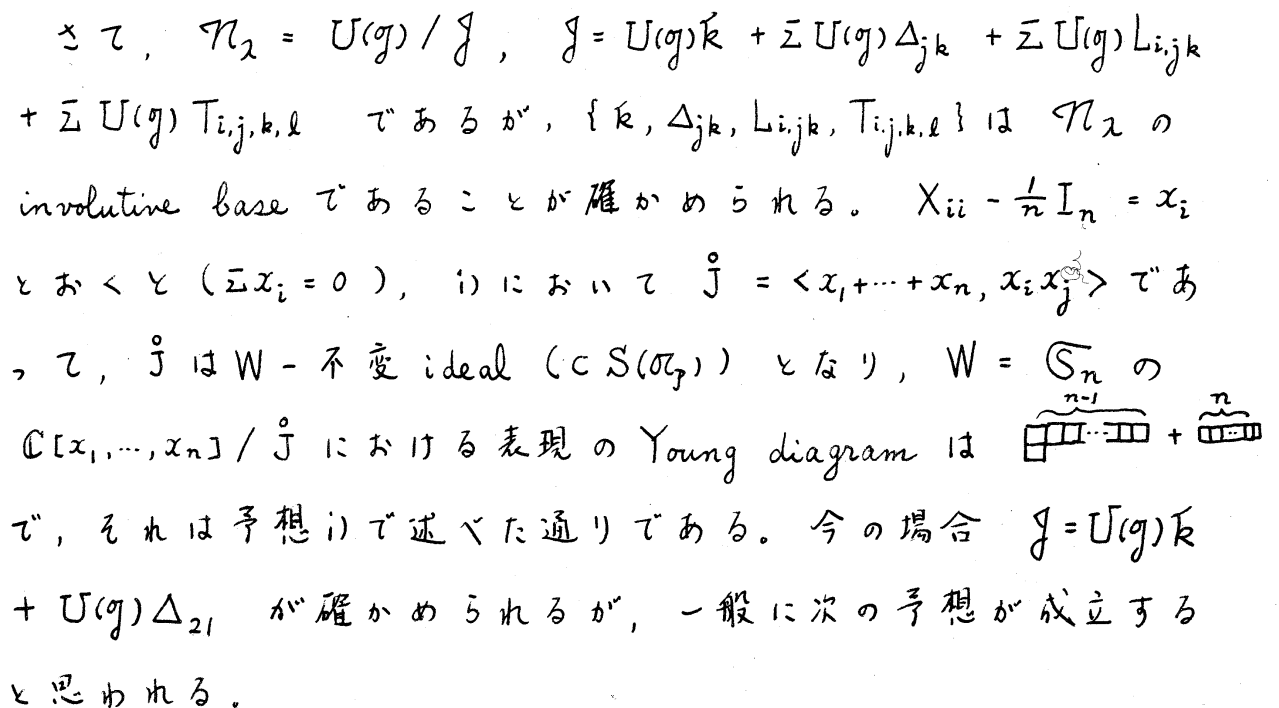 さて, 𝔑_λ = U(g) / 𝒥, 𝒥 = U(g)k̄ + Σ U(g)Δ_{jk} + Σ U(g) L_{i,jk}
+ Σ U(g) T_{i,j,k,l} であるが, { k̄, Δ_{jk}, L_{i,jk}, T_{i,j,k,l} } は 𝔑_λ の
involutive base であることが確かめられる。 X_{ii} - 1/n I_n = x_i
とおくと (Σx_i = 0 ), i) において J̊ = <x_1+…+x_n, x_i x_j> であ
って, J̊ は W - 不変 ideal (⊂ S(𝔞_p)) となり, W = 𝔖_n の
ℂ[x_1,…,x_n] / J̊ における表現の Young diagram は n-1 + n
で, それは予想 i) で述べた通りである。今の場合 𝒥 = U(g)k̄
+ U(g)Δ_{21} が確かめられるが, 一般に次の予想が成立する
と思われる。